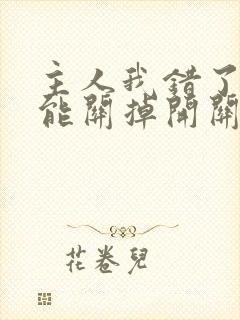 主人我错了
能關掉開關
花卷兒